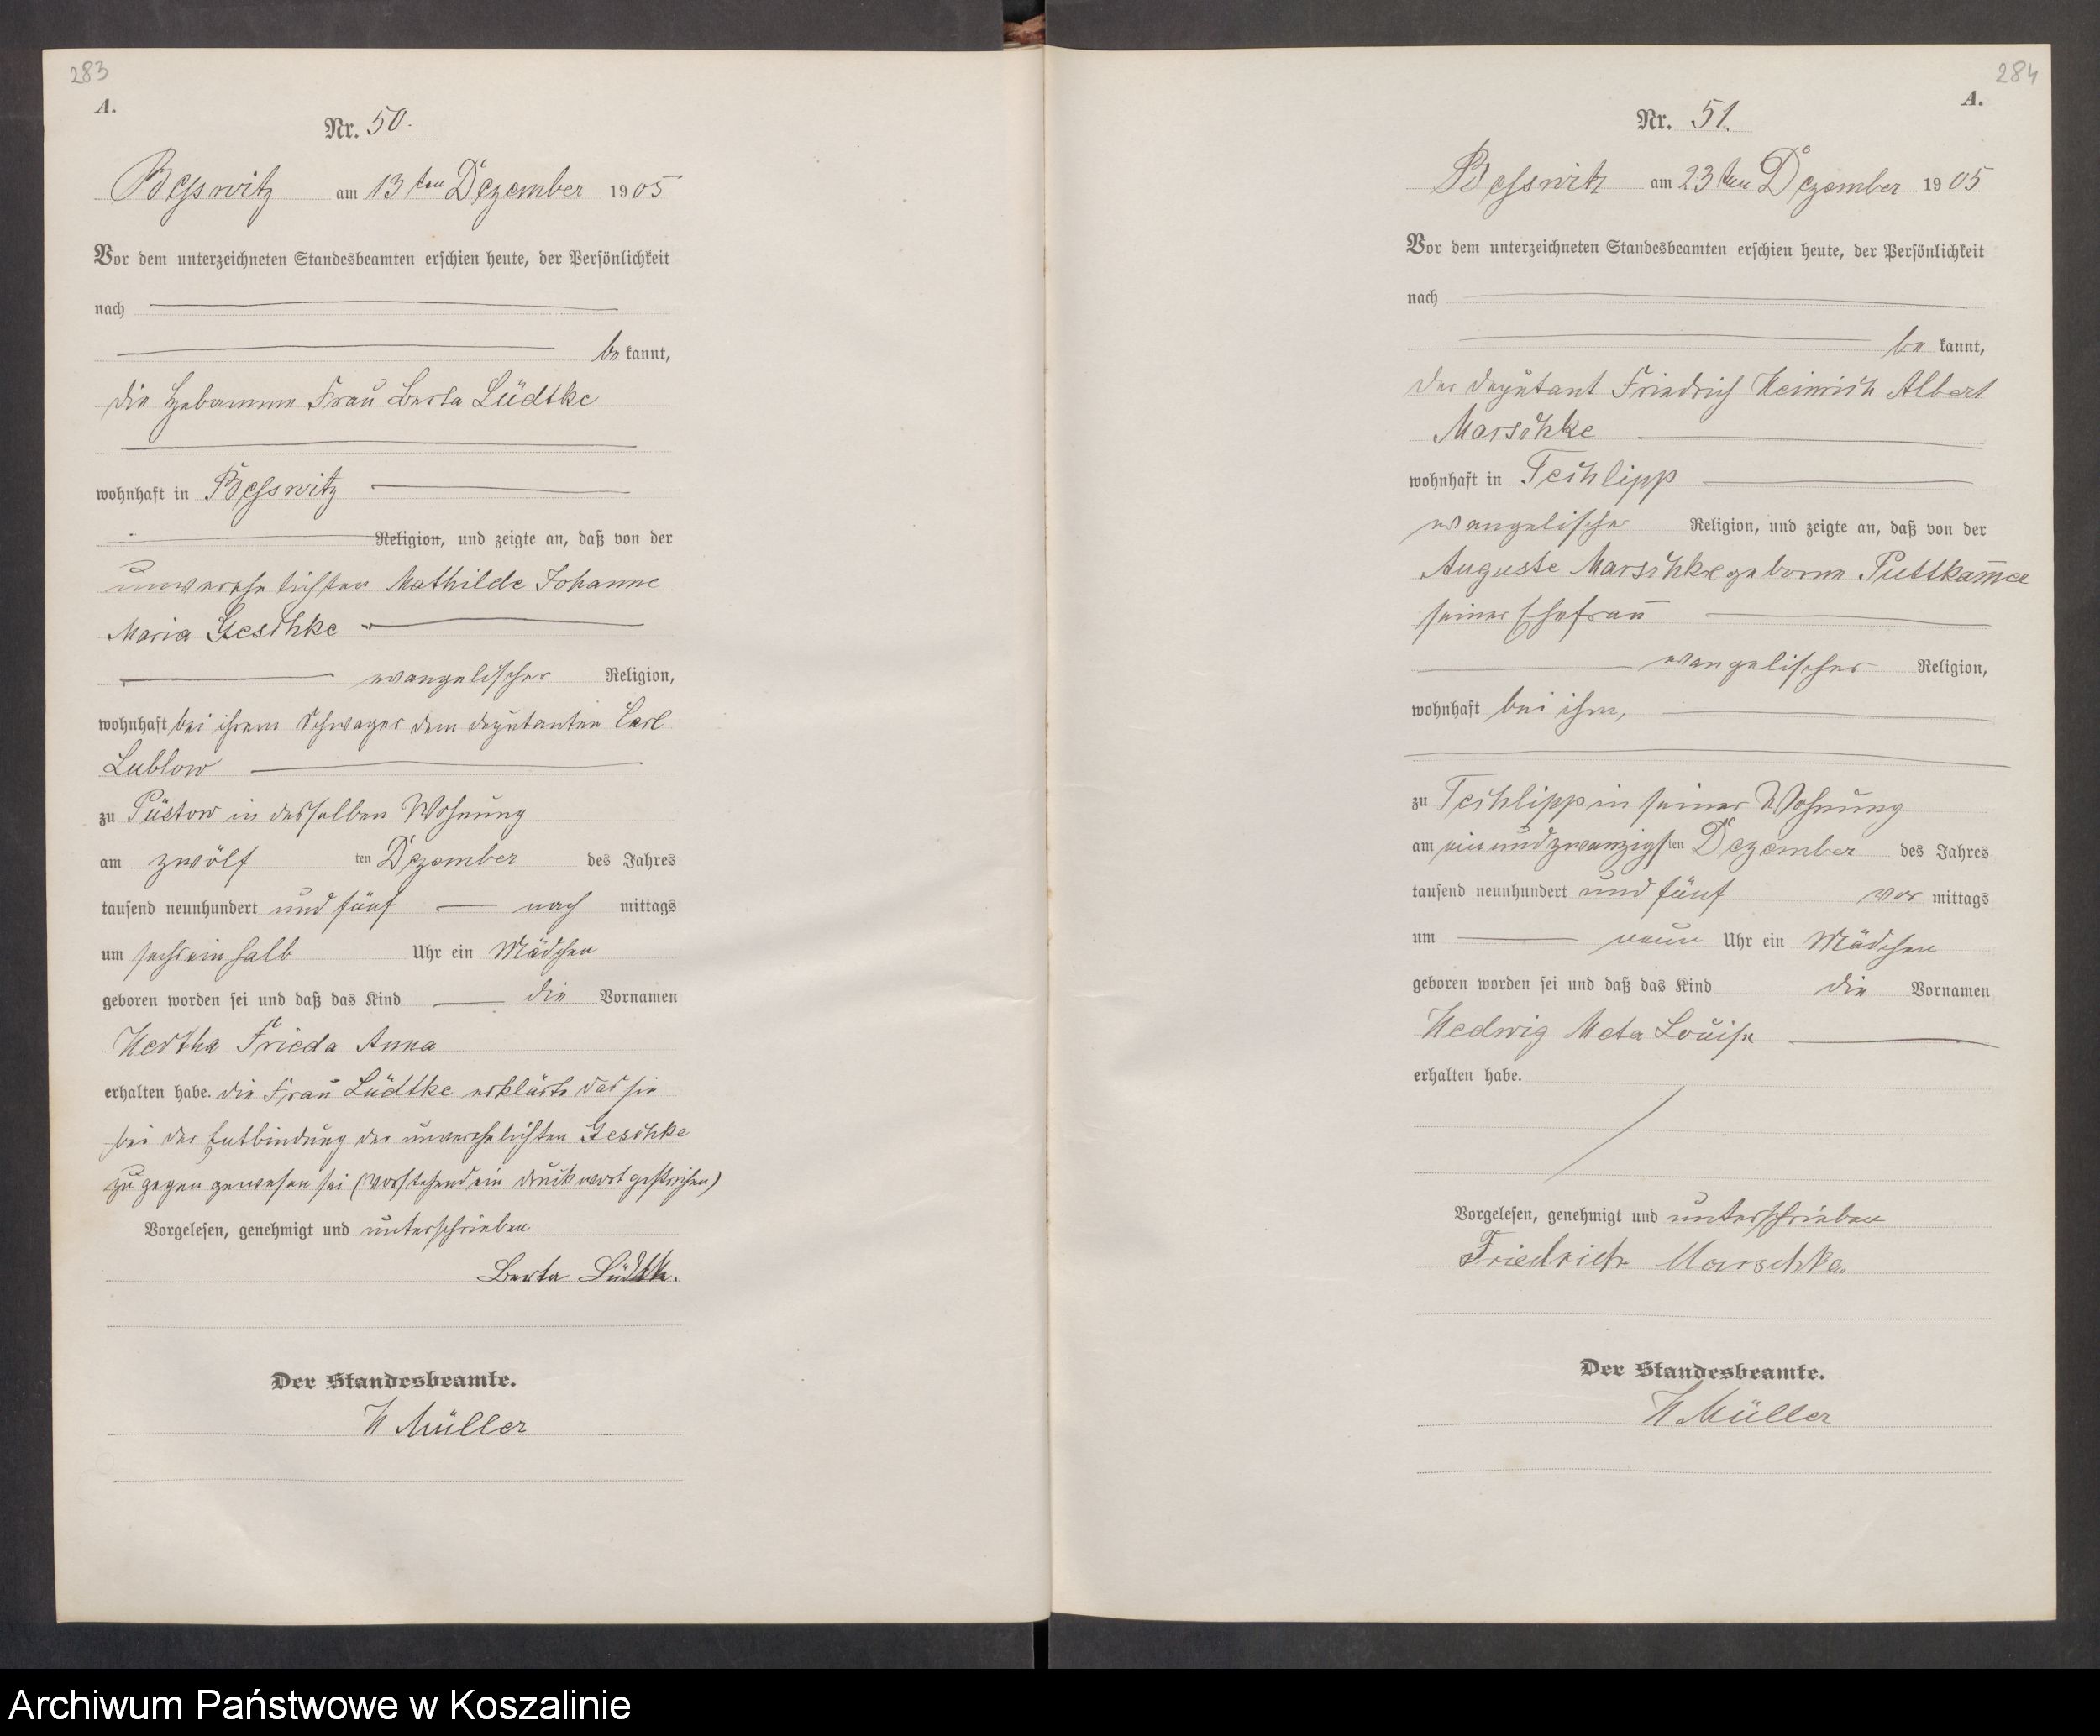 283
A.
Nr. 50.
Besswitz am 13ten Dezember 1905
Vor dem unterzeichneten Standesbeamten erschien heute, der Persönlichkeit
nach
be kannt,
die Hebamme Frau Berta Lüdtke
wohnhaft in Besswitz
Religion, und zeigte an, daß von der
unverehelichten Mathilde Johanne
Maria Geschke
evangelischer Religion,
wohnhaft bei ihrem Schwager dem Deputanten Carl
Lublow
zu Püstow in desselben Wohnung
am zwölf ten Dezember des Jahres
tausend neunhundert und fünf nach mittags
um sechseinhalb Uhr ein Mädchen
geboren worden sei und daß das Kind die Vornamen
Hertha Frieda Anna
erhalten habe. die Frau Lüdtke erklärte das sie
bei der Entbindung der unverehelichten Geschke
zu gegen gewesen sei (vorstehend ein Druckwort gestrichen)
Vorgelesen, genehmigt und unterschrieben
Berta Lüdtke.
Der Standesbeamte.
H Müller
284
A.
Nr. 51.
Besswitz am 23ten Dezember 1905
Vor dem unterzeichneten Standesbeamten erschien heute, der Persönlichkeit
nach
be kannt,
der Deputant Friedrich Heinrich Albert
Marschke
wohnhaft in Techlipp
evangelischer Religion, und zeigte an, daß von der
Auguste Marschke geborne Puttkam̄er
seiner Ehefrau
evangelischer Religion,
wohnhaft bei ihm,
zu Techlipp in seiner Wohnung
am einundzwanzigsten Dezember des Jahres
tausend neunhundert und fünf vor mittags
um neun Uhr ein Mädchen
geboren worden sei und daß das Kind die Vornamen
Hedwig Meta Louise
erhalten habe.
Vorgelesen, genehmigt und unterschrieben
Friedrich Marschke.
Der Standesbeamte.
H Müller
Archiwum Państwowe w Koszalinie